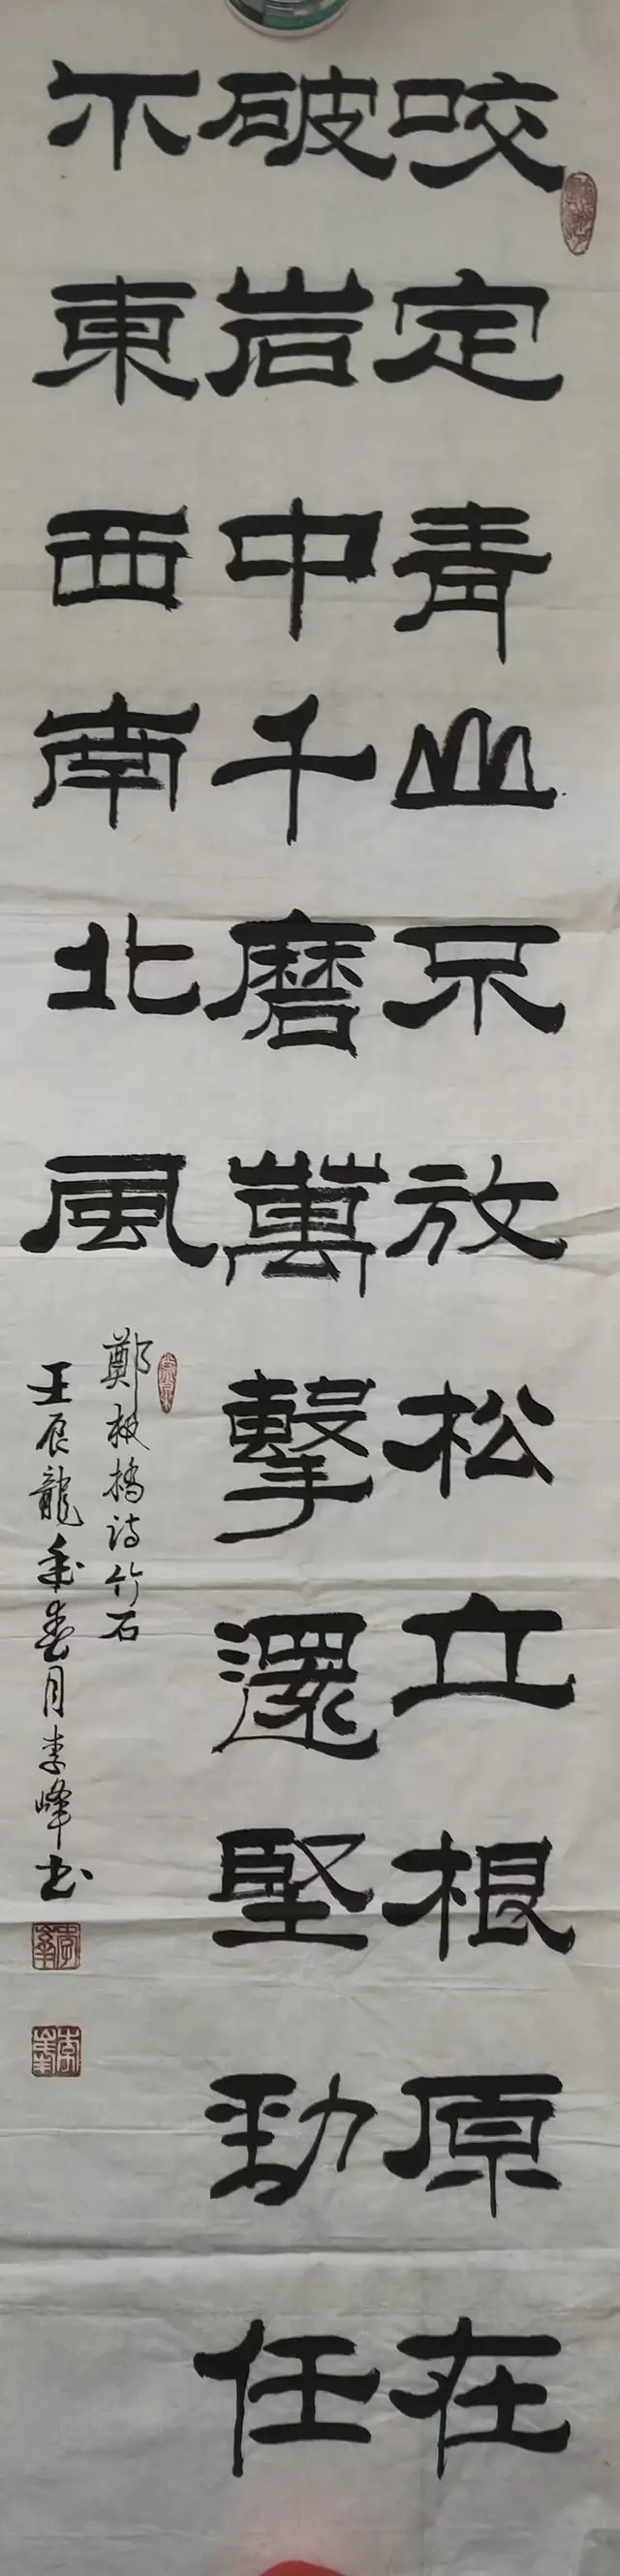 咬定青山不放松立根原在
破岩中千磨萬擊還堅勁任
尔東西南北風
鄭板橋詩竹石
壬辰龍年春月李峰书